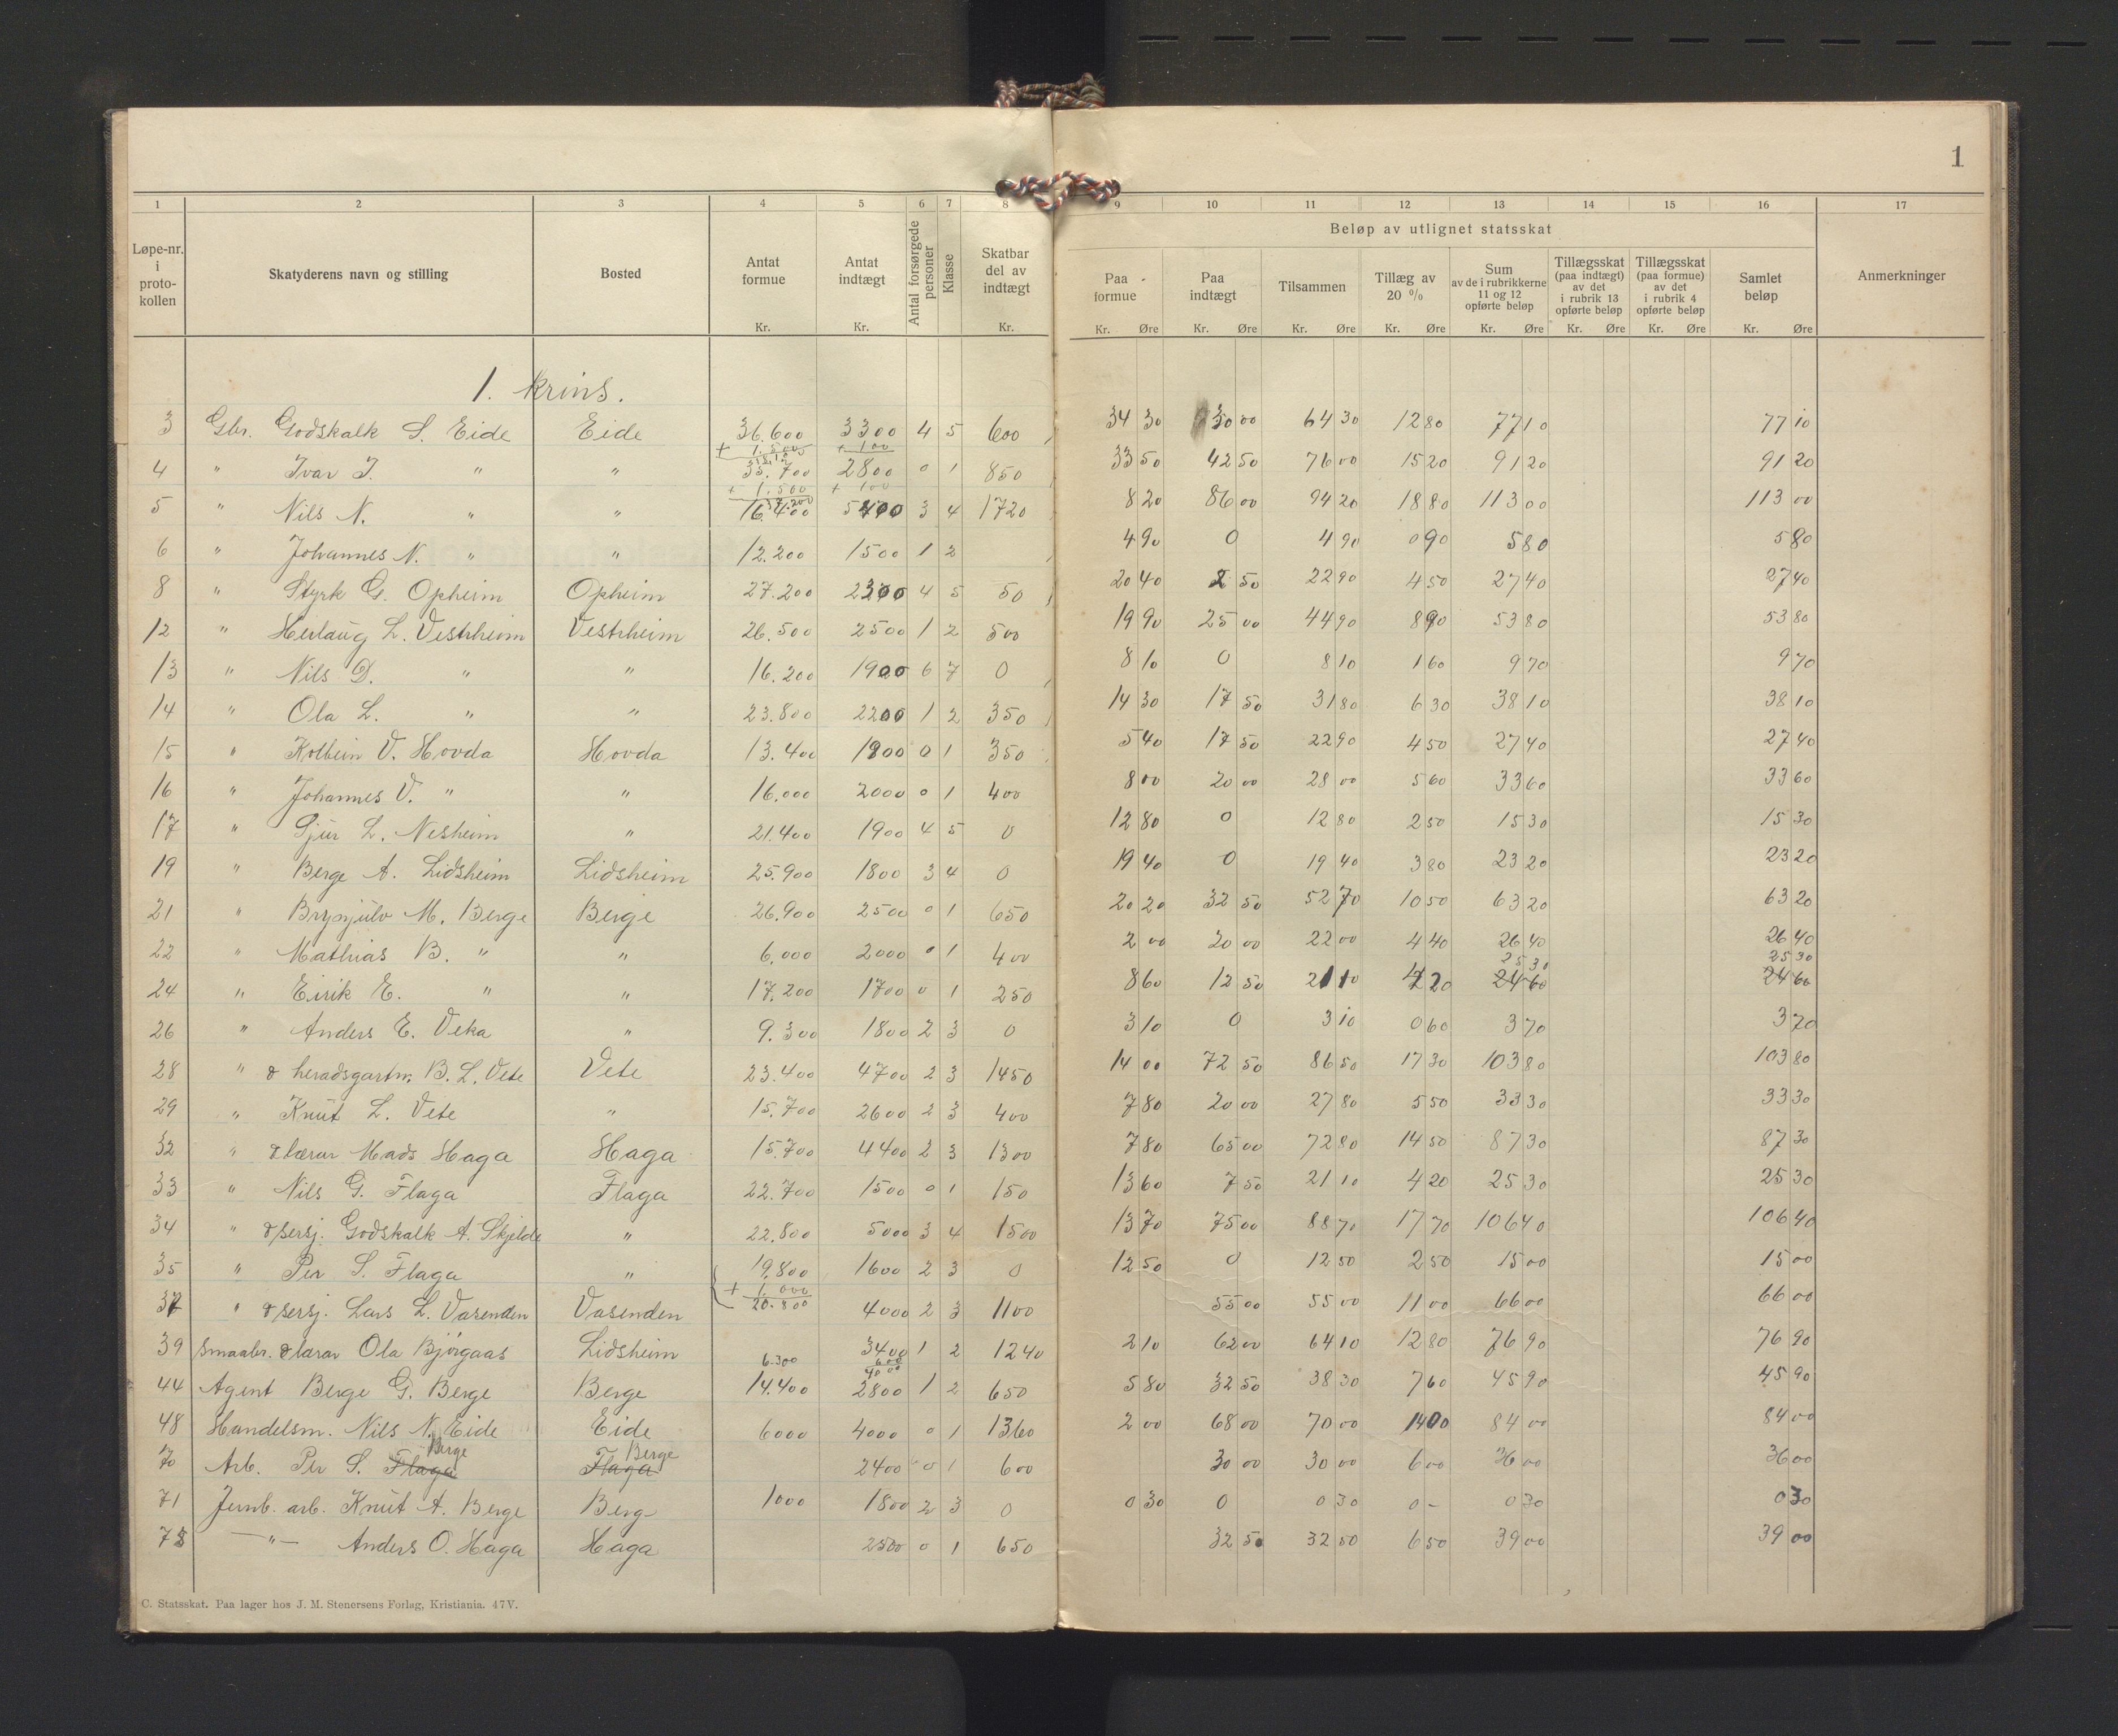 1
1 2 3 4 5 6 7 8 9 10 11 12 13 14 15 16 17
Beløp av utlignet statsskat
Løpe-nr. i proto-kollen Skatyderens navn og stilling Bosted Antat formue Kr. Antat indtægt Kr. Antal forsørgede personer Klasse Skatbar del av indtægt Kr. Paa formue Kr. Øre Paa indtægt Kr. Øre Tilsammen Kr. Øre Tillæg av 20 % Kr. Øre Sum av de i rubrikkerne 11 og 12 opførte beløp Kr. Øre Tillægsskat (paa indtægt) av det i rubrik 13 opførte beløp Kr. Øre Tillægsskat (paa formue) av det i rubrik 4 opførte beløp Kr. Øre Samlet beløp Kr. Øre Anmerkninger
1. krins.
3 Gbr. Godskalk S. Eide Eide 36.600 3300 4 5 600 34 30 30 00 64 30 12 80 77 10 77 10
+ 1.500 + 100
4 " Ivar I. " " 35.700 2800 0 1 850 33 50 42 50 76 00 15 20 91 20 91 20
+ 1.500 + 100
37.200
5 " Nils N. " " 16.400 5400 3 4 1720 8 20 86 00 94 20 18 80 113 00 113 00
6 " Johannes N. " " 12.200 1500 1 2 4 90 0 4 90 0 90 5 80 5 80
8 " Styrk G. Opheim Opheim 27.200 2300 4 5 50 20 40 2 50 22 90 4 50 27 40 27 40
12 " Herlaug L. Vestrheim Vestrheim 26.500 2500 1 2 500 19 90 25 00 44 90 8 90 53 80 53 80
13 " Nils D. " " 16.200 1900 6 7 0 8 10 0 8 10 1 60 9 70 9 70
14 " Ola L. " " 23.800 2200 1 2 350 14 30 17 50 31 80 6 30 38 10 38 10
15 " Kolbein V. Hovda Hovda 13.400 1900 0 1 350 5 40 17 50 22 90 4 50 27 40 27 40
16 " Johannes V. " " 16.000 2000 0 1 400 8 00 20 00 28 00 5 60 33 60 33 60
17 " Sjur L. Nesheim " 21.400 1900 4 5 0 12 80 0 12 80 2 50 15 30 15 30
19 " Berge A. Lidsheim Lidsheim 25.900 1800 3 4 0 19 40 0 19 40 3 80 23 20 23 20
21 " Brynjulv M. Berge Berge 26.900 2500 0 1 650 20 20 32 50 52 70 10 50 63 20 63 20
22 " Mathias B. " " 6.000 2000 0 1 400 2 00 20 00 22 00 4 40 26 40 26 40
25 30 25 30
24 " Eirik E. " " 17.200 1700 0 1 250 8 60 12 50 21 10 4 20 24 60 24 60
26 " Anders E. Veka " 9.300 1800 2 3 0 3 10 0 3 10 0 60 3 70 3 70
28 " & heradsgartn. B. L. Vete Vete 23.400 4700 2 3 1450 14 00 72 50 86 50 17 30 103 80 103 80
29 " Knut L. Vete " 15.700 2600 2 3 400 7 80 20 00 27 80 5 50 33 30 33 30
32 " & lærar Mads Haga Haga 15.700 4400 2 3 1300 7 80 65 00 72 80 14 50 87 30 87 30
33 " Nils G. Flaga Flaga 22.700 1500 0 1 150 13 60 7 50 21 10 4 20 25 30 25 30
34 " & sersj. Godskalk A. Skjelde " 22.800 5000 3 4 1500 13 70 75 00 88 70 17 70 106 40 106 40
35 " Per S. Flaga " 19.800 1600 2 3 0 12 50 0 12 50 2 50 15 00 15 00
+ 1.000
20.800
37 " & sersj. Lars L. Vasenden Vasenden 4000 2 3 1100 55 00 55 00 11 00 66 00 66 00
39 Smaabr. & lærar Ola Bjørgaas Lidsheim 6.300 3400 1 2 1240 2 10 62 00 64 10 12 80 76 90 76 90
600
4000
44 Agent Berge G. Berge Berge 14.400 2800 1 2 650 5 80 32 50 38 30 7 60 45 90 45 90
48 Handelsm. Nils N. Eide Eide 6000 4000 0 1 1360 2 00 68 00 70 00 14 00 84 00 84 00
Berge Berge
70 Arb. Per S. Flaga Flaga 2400 0 1 600 30 00 30 00 6 00 36 00 36 00
71 Jernb. arb. Knut A. Berge Berg 1000 1800 2 3 0 0 30 0 0 30 0 - 0 30 0 30
73 — " — Anders O. Haga Haga 2500 0 1 650 32 50 32 50 6 50 39 00 39 00
C. Statsskat. Paa lager hos J. M. Stenersens Forlag, Kristiania. 47V.